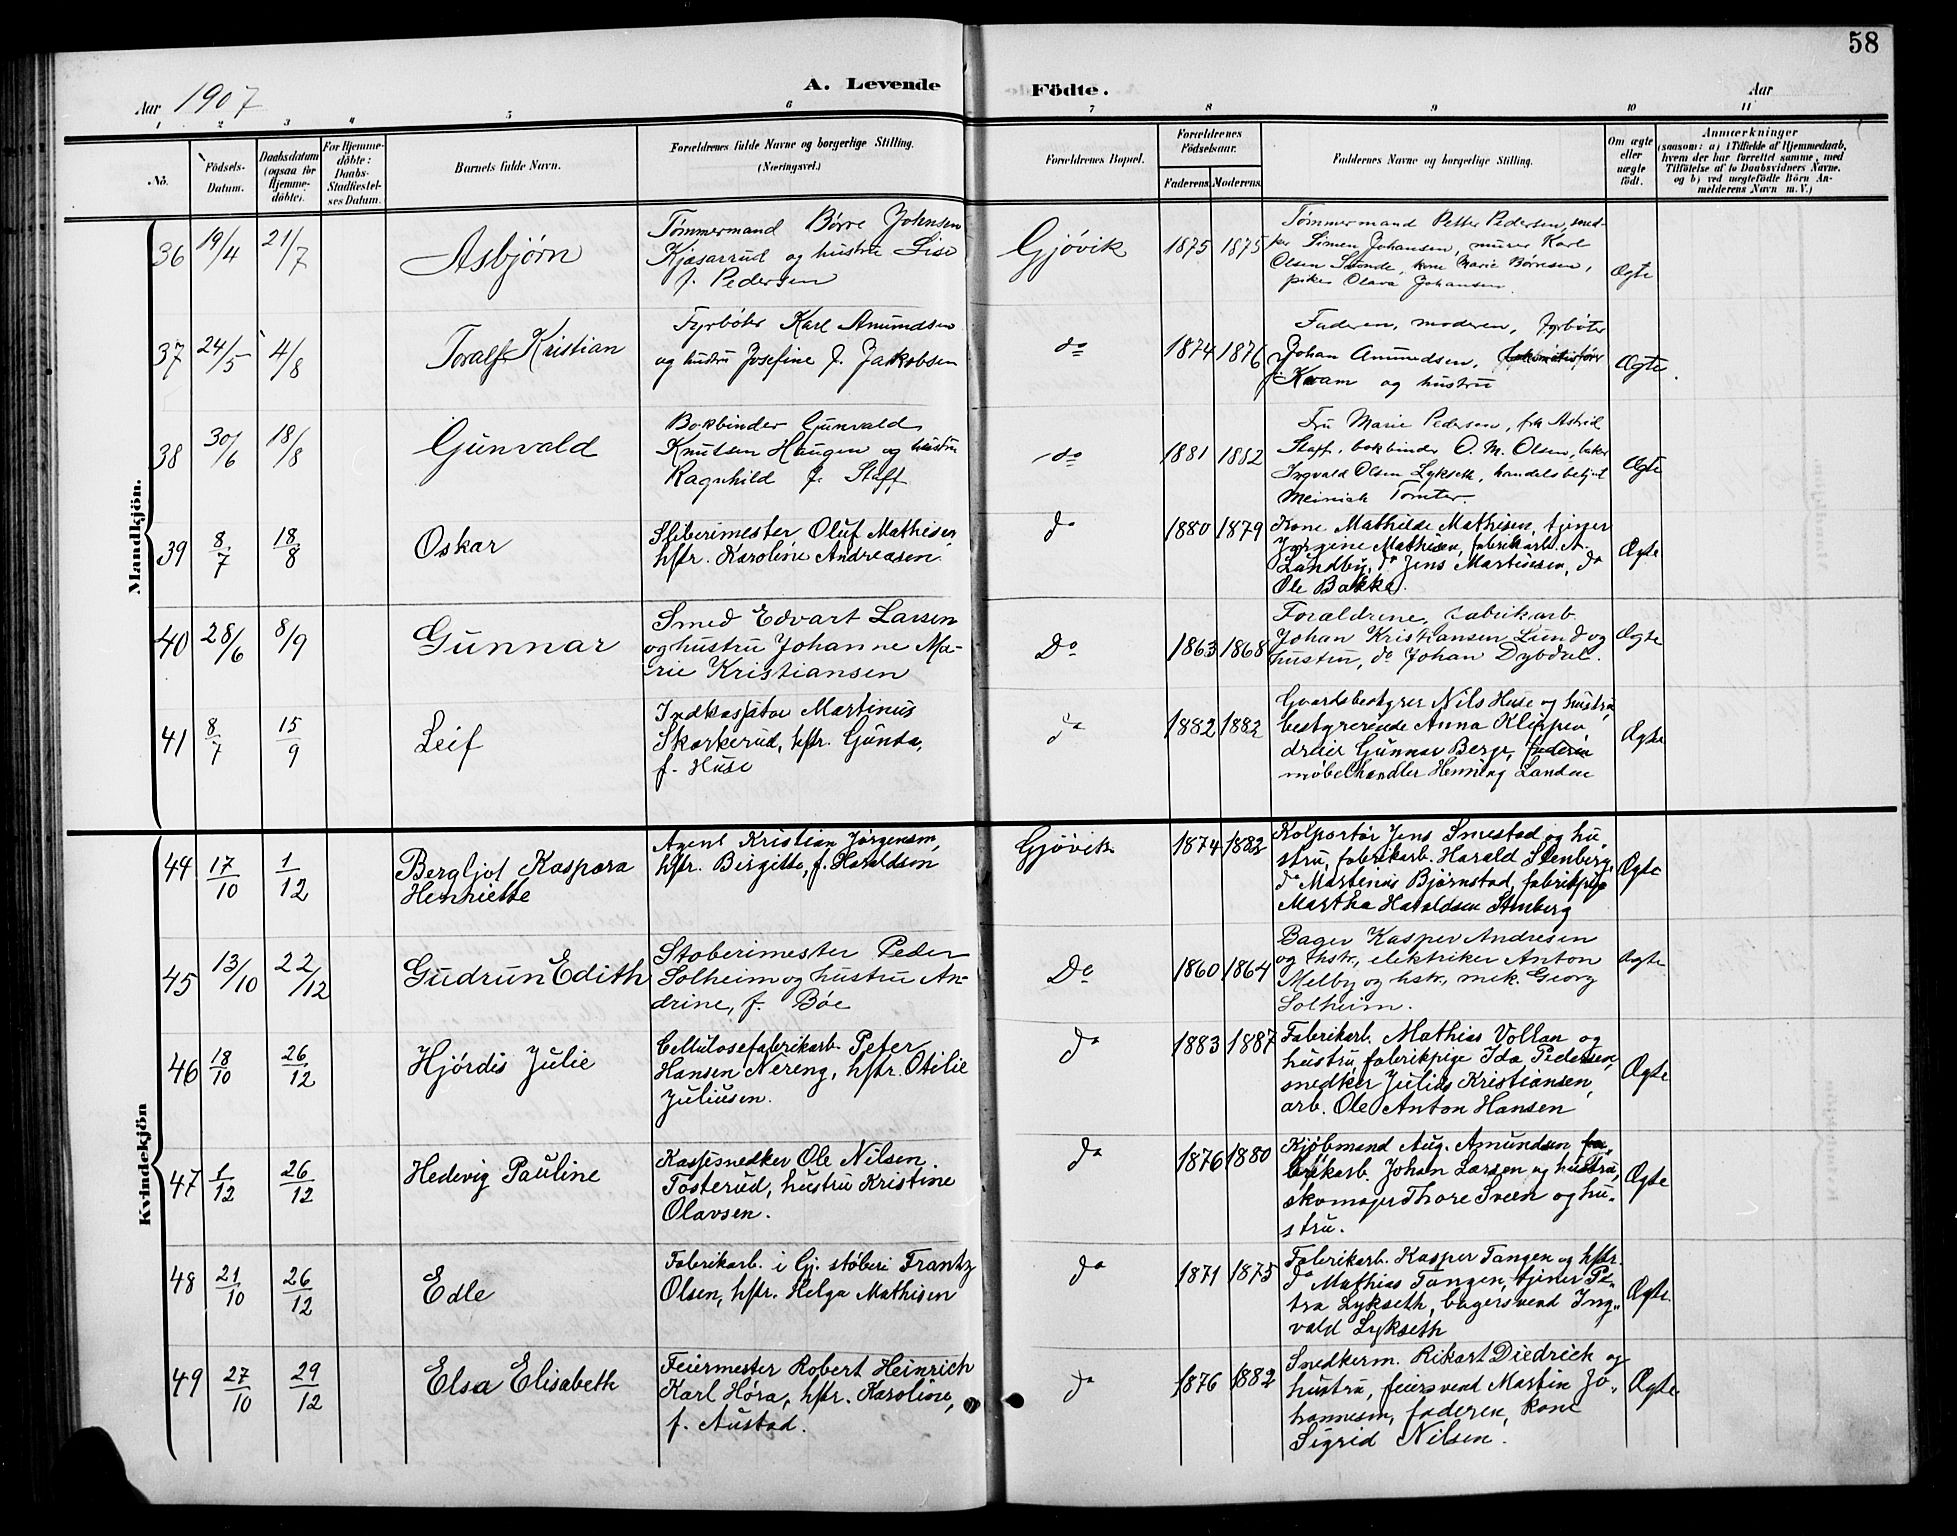 58
Aar 1907
A. Levende
Födte.
Aar
1 2 3 4 5 6 7 8 9 10 11
No.
Födsels-
Datum.
Daabsdatum
(ogsaa for
Hjemme-
döbte).
For Hjemme-
döbte:
Daabs-
Stadfæstel-
ses Datum.
Barnets fulde Navn.
Forældrenes fulde Navne og borgerlige Stilling.
(Næringsvei.)
Forældrenes Bopæl.
Forældrenes
Födselsaar.
Faderens. Moderens.
Faddernes Navne og borgerlige Stilling.
Om ægte
eller
uægte
födt.
Anmærkninger
(saasom: a) i Tilfælde af Hjemmedaab,
hvem der har forrettet samme, med
Tilföielse af to Daabsvidners Navne.
og b) ved uægtefödte Börn An-
melderens Navn m. V.)
Mandkjön.
36 19/4 21/7
Asbjørn
Tømmermand Børre Johnsen
Kjæsarrud og hustru Lise
f. Pedersen
Gjøvik
1875 1875
Tømmermand Petter Pedersen, sned-
ker Simen Johansen, murer Karl
Olsen Stonde, kone Marie Børresen,
pike Olava Johansen.
Ægte
37 24/5 4/8
Toralf Kristian
Fyrbøter Karl Amundsen
og hustru Josefine f. Jakobsen
do
1874 1876
Faderen, moderen, fyrbøter
Johan Amundsen,
Kvam og hustru
Ægte.
38 30/6 18/8
Gunvald
Bokbinder Gunvald
Knutsen Haugen og hustru
Ragnhild f. Staff
do
1881 1882
Fru Marie Pedersen, frk Astrid
Staff, bokbinder O. M. Olsen, baker
Ingvald Olsen Lykseth, handelsbetjent
Meinich Tomter.
Ægte
39 8/7 18/8
Oskar
Sliberimester Oluf Mathisen
hstr. Karoline Andreasen
do
1880 1879
Kone Mathilde Mathisen, tjener
Jørgine Mathisen, fabrikarb. A.
Lundby, do Jens Martinsen, do
Ole Bakke.
Ægte
40 28/6 8/9
Gunnar
Smed Edvart Larsen
og hustru Johanne Ma-
rie Kristiansen
Do
1863 1868
Forældrene, fabrikarb.
Johan Kristiansen Lund og
hustru, do Johan Dybdal.
Ægte
41 8/7 15/9
Leif
Indkassator Martinus
Skarkerud, hstr. Gunda,
f. Huse
do
1882 1882
Gaardsbestyrer Nils Huse og hustru,
bestyrerinde Anna Kleppen
dreier Gunnar Berge, faderen
møbelhandler Henning Landen
Ægte
Kvindekjön
44 17/10 1/12
Bergljot Kaspara
Henriette
Agent Kristian Jørgensen,
hstr. Birgitte, f. Haraldsen
Gjøvik
1874 1882
Kolportør Jens Smestad og hu-
stru, fabrikarb. Harald Stenberg,
do Martinus Bjørnstad, fabrikpige
Martha Haraldsen Stenberg
Ægte
45 13/10 22/12
Gudrun Edith
Støberimester Peder
Solheim og hustru An-
drine, f. Bøe
Do
1860 1864
Bager Kasper Andresen
og hstr, elektriker Anton
Melby og hstr, mek. Georg
Solheim.
Ægte
46 18/10 26/12
Hjørdis Julie
Cellulosefabrikarb. Peter
Hansen Nereng, hstr. Otilie
Juliusen.
do
1883 1887
Fabrikarb. Mathias Vollan og
hustru, fabrikpige Ida Pedersen,
snedker Julius Kristiansen,
arb. Ole Anton Hansen
Ægte
47 1/12 26/12
Hedevig Pauline
Kassesnedker Ole Nilsen
Tosterud, hustru Kristine
Olavsen.
do
1876 1880
Kjøbmand Aug. Amundsen fa-
brikarb. Johan Larsen og hustru,
skomager Thore Sveen og hu-
stru.
Ægte
48 21/10 26/12
Edle
Fabrikarb. i Gj. støberi Frantz
Olsen, hstr. Helga Mathisen
do
1871 1875
Fabrikarb. Kasper Tangen og hstr.
do Mathias Tangen, tjener Pe-
tra Lykseth, bagersvend Ing-
vald Lykseth
Ægte.
49 27/10 29/12
Elsa Elisabeth
Feiermester Robert Heinrich
Karl Høra, hstr. Karoline,
f. Austad.
do
1876 1882
Snedkerm. Rikart Diedrick og
hustru, feiersvend Martin Jo-
hannesen, faderen, kone
Sigrid Nilsen.
Ægte